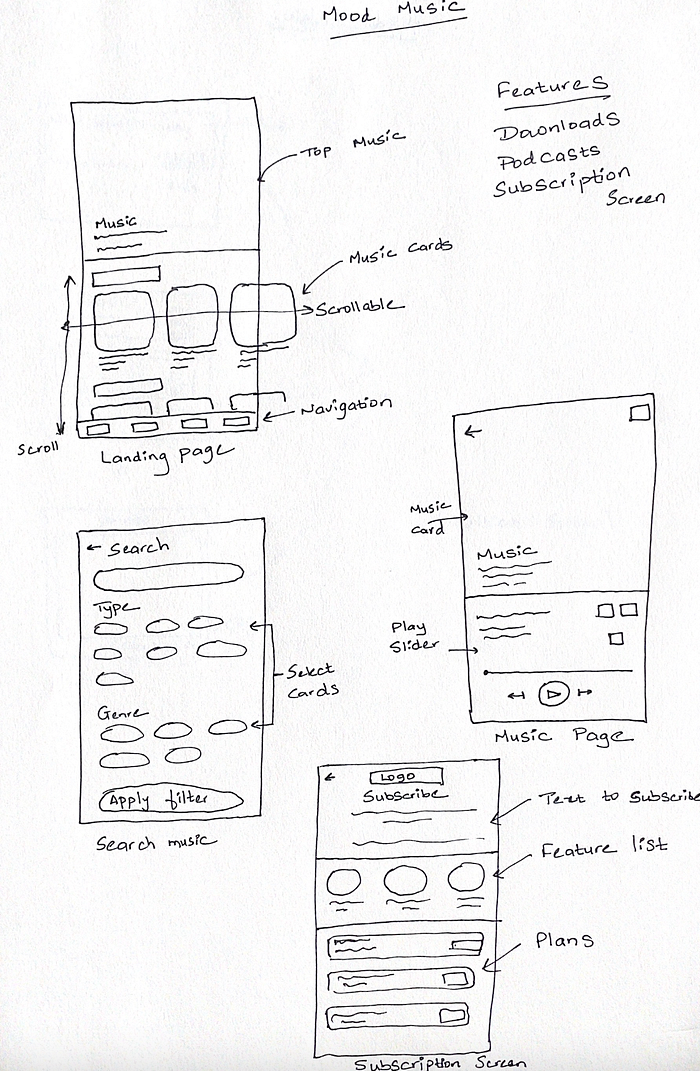 Mood Music
Features
Daonloads
Podcasts
Subscription
Screen
Top Music
Music
Music Cards
Scrollable
Navigation
Scroll
Landing page
Music
Card
Music
Play
Slider
Music Page
← Search
Type
Select
Cards
Genre
Apply filter
Search music
Logo
Subscribe
Text to Subscribe
Feature list
Plans
Subscription Screen